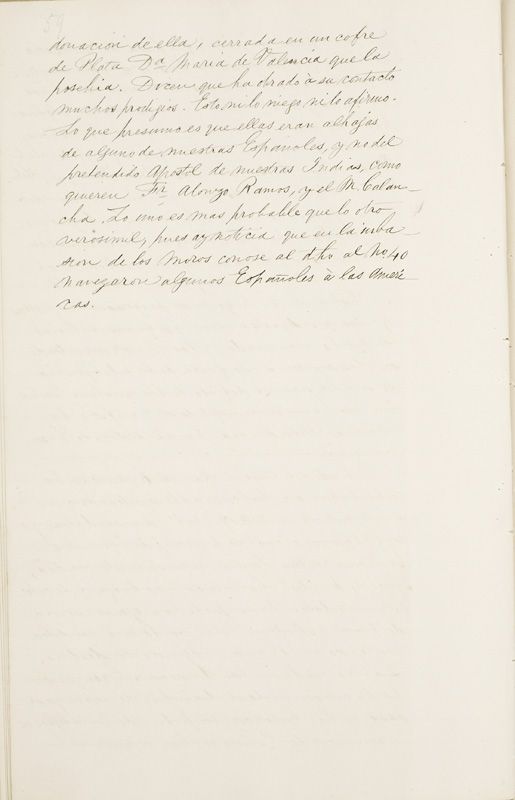 59
donacion de ella, cerrada en un cofre
de Plata Dª. Maria de Valencia que la
poschia. Docen que ha obrado à su contacto
muchos prodigios. Esto ni lo niego ni lo afirmo.
Lo que presumo es que ellas eran alhajas
de alguno de nuestras Españoles, y no del
pretendido Apostol de nuestras Indias, como
quieren Fr. Alonzo Ramos, y el M. Calan-
cha. Lo uno es mas probable que lo otro
verosimil, pues ay noticia que en la inba-
sion de los Moros al no. 40
navegaron algunos Españoles à las Ameri-
cas.